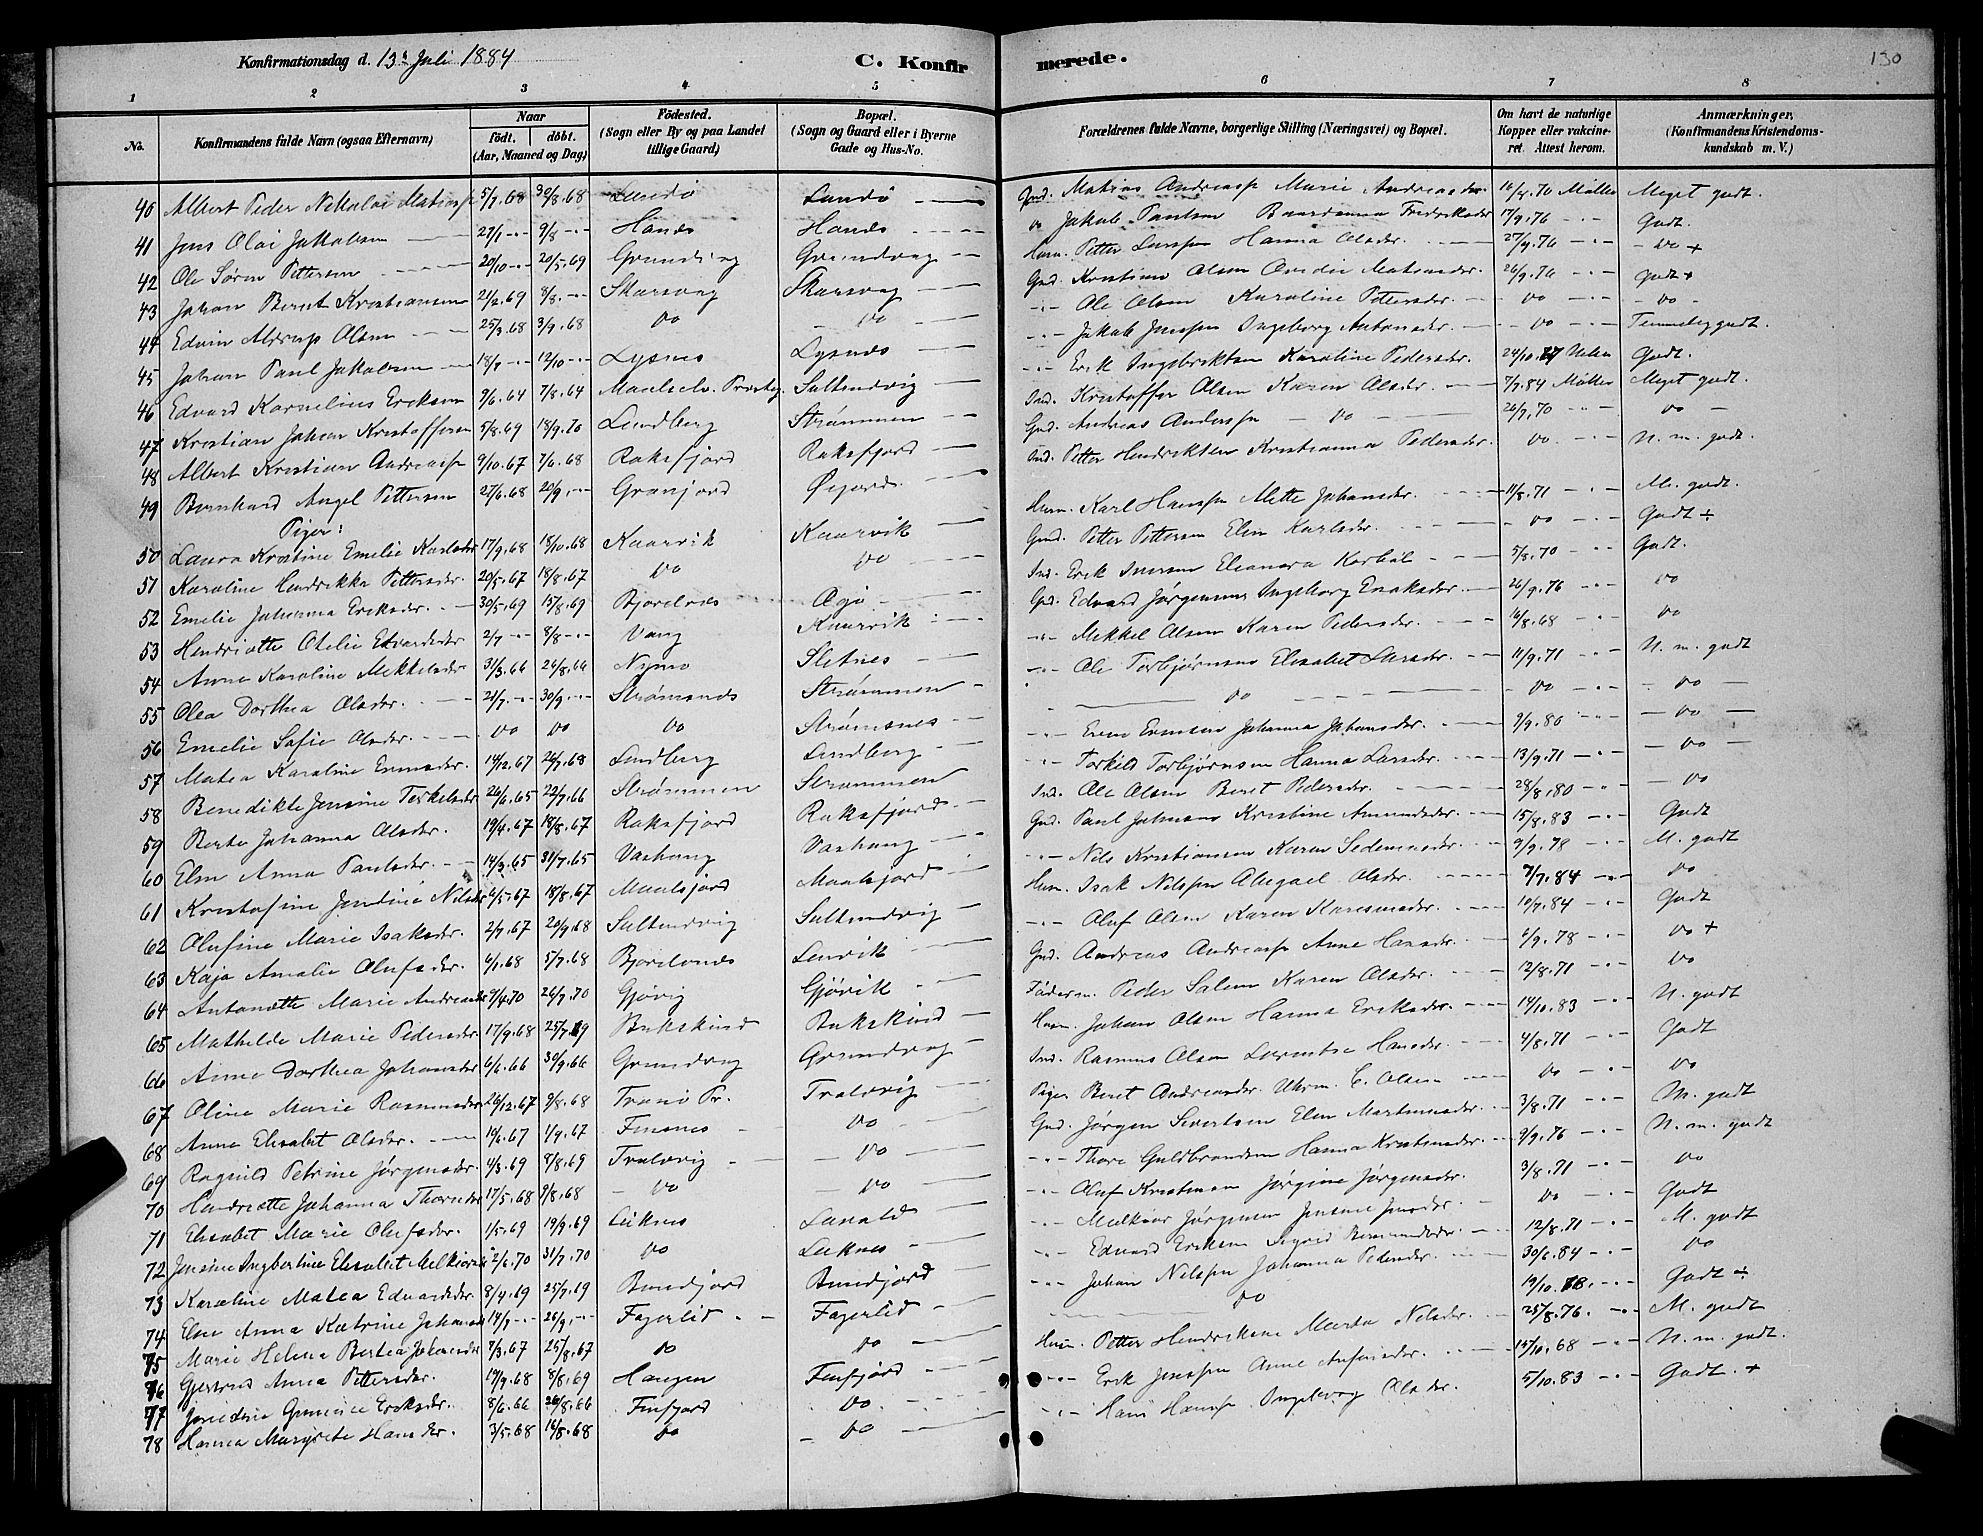 Konfirmationsdag d. 13de Juli 1884 C. Konfirmerede. 130
1 2 3 4 5 6 7 8
No. Konfirmandens fulde Navn (ogsaa Efternavn) Naar födt. döbt. (Aar, Maaned og Dag) Födested. (Sogn eller By og paa Landet tillige Gaard) Bopæl. (Sogn og Gaard eller i Byerne Gade og Hus-No. Forældrenes fulde Navne, borgerlige Stilling (Næringsvei) og Bopæl. Om havt de naturlige Kopper eller vakcineret. Attest herom. Anmærkninger. (Konfirmandens Kristendomskundskab m. V.)
40 Albert Peder Nikolai Matiass 5/7.68 30/8.68 Landö Landö Gmd. Matias Andreass Marie Andreasdr. 16/8.70 Möller Meget godt.
41 Jens Olai Jakobsen 27/1 -"- 9/8 -"- Hands Hands do Jakob Paulsen Baardanna Fredriksdr 17/9.76 -"- Godt.
42 Ole Søren Pettersen 20/10 -"- 20/5.69 Grundvig Grundvag Husm. Petter Larssen Hanna Olsdr. 27/9.76 -"- do +
43 Johan Beret Kristiansen 21/2.69 8/8. -"- Skarsvag Skarsvag Gmd. Kristian Olsen Matisdr. 26/9.76 -"- godt +
44 Edvin Olsen 25/3.68 3/9.68 do do -"- Ole Olsen Karoline Pettersdr. do -"- do -
45 Johan Paul Jakobsen 18/1 -"- 12/10 -"- Lysnes Lysnes -"- Jakob Jenssen Ingeborg Antonsdr. do -"- Temmelig godt.
46 Edvard Kornelius Eriksen 9/6.64 7/8.64 Maalselv. Præsteg. Sultindvig -"- Erik Ingebriktsen Karoline Pedersdr. 24/10. Godt.
47 Kristian Johan Kristoffersen 5/8.69 18/9.70 Lundberg Strømmen Ind. Kristoffer Olsen Karen Olsdr. 7/7.84 Möller Meget godt.
48 Albert Kristian Andreass 9/10.67 7/6.68 Raksfjord Raksfjord Gmd. Andreas Anderss do 26/7.70 -"- do
49 Bernhard Angel Pettersen 27/6.68 20/9. -"- Granfjord Øifjord. Ind. Petter Hendriksen Kristianna Pedersdr. do -"- N. m. godt.
Piger:
50 Laura Kristine Emelie Karlsdr 17/9.68 18/10.68 Kaarvik Kaarvik Husm. Karl Hanssen Mette Johansdr. 11/8.71 -"- M. godt.
51 Karoline Hendrikke Pettersdr. 20/5.67 18/8.67 do do Gmd. Petter Pettersen Elen Karlsdr. do -"- Godt ÷
52 Emelie Johanna Eriksdr. 30/5.69 15/8.69 Bjorelvnes Ind. Erik Iversen Eleonora Karböl 5/8.70 -"- Godt.
53 Hendriette Otelie Edvardsdr 2/7 -"- 8/8 -"- Vang Kaarvik Gmd. Edvard Jørgensen Ingeborg Enoksdr. 26/9.76 -"- do
54 Anne Karoline Mekkelsdr 31/3.66 26/8.66 Nymo Sletnes -"- Mekkel Olsen Karen Pedersdr. 16/8.68 -"- do
55 Olea Dorthea Olsdr. 21/7. -"- 30/9. -"- Strømsnes Strømmen -"- Ole Torbjørnsen Elisabet Larsdr. 11/9.71 -"- N. m. godt
56 Emelie Sofie Olsdr. do do do Strømsnes do do -"- do
57 Matea Karoline Evensdr. 14/12.67 26/7.68 Lundberg Lundberg -"- Even Evensen Johanna Johansdr. 9/9.80 do
58 Benedikte Jensine Torkelsdr 26/6.65 22/7.66 Strømmen Strømmen -"- Torkild Torbjørnsen Hanna Larsdr. 13/9.71 -"- do
59 Berta Johanna Olsdr. 19/4.67 18/8.67 Raksfjord Raksfjord Ind. Ole Olsen Beret Pedersdr. 28/8.80 -"- do
60 Elen Anna Paulsdr. 14/3.65 31/7.65 Vashaug Vashaug Gmd. Paul Johnsen Kristine Amundsdr. 15/8.83 -"- Godt
61 Kristofine Jentine Nilsdr 6/5.67 18/8.67 Maalsfjord Maalsfjord -"- Nils Kristiansen Karen 9/9.78 -"- M. godt.
62 Olufine Marie Isaksdr. 2/7.67 20/9.68 Sultindvig Sultindvig Husm. Isak Nilssen Abigael Olsdr. 7/7.84 -"- do
63 Kaja Amalie Olufsdr. 6/1.68 5/7.68 Bjorelvnes Lenvik -"- Oluf Olsen Karen 10/7.84 -"- Godt
64 Antonette Marie Andreasdr 9/4.70 26/7.70 Gjövig Gjövik Gmd. Andreas Andreass Anne Hansdr. 4/9.78 -"- do +
65 Mathilde Marie Pedersdr 17/9.68 25/7.69 Bukskind Bukskind Föderm. Peder Salem Karen Olsdr. 12/8.71 -"- do
66 Anne Dorthea Johansdr 6/6.66 30/9.66 Grundvag Grundvag Husm. Johan Olsen Hanna Eriksdr. 14/10.83 -"- N. godt
67 Oline Marie Rasmusdr 26/12.67 9/8.68 Tranö Pr. Tralvvig Ind. Rasmus Olsen Lorentse Hansdr. 4/8.71 -"- Godt
68 Anne Elisabet Olsdr. 19/6.67 1/9.67 Finsnes do Pige Beret Andreasdr. Uhrm. C. Olsen do -"- do
69 Ragnild Petrine Jørgensdr. 4/3.69 8/8.69 Tralvvig do Gmd. Jørgen Sivertsen Elen Martinusdr. 3/8.71 -"- M. godt
70 Hendriette Johanna Thorsdr 17/5.68 9/8.68 do do -"- Thore Guldbrandsen Hanna 9/9.76 -"- N. m. godt
71 Elisabet Marie Olufsdr. 1/5.69 19/9.69 Leiknes -"- Oluf Kristensen Jørgine Jørgensdr. 3/8.71 -"- do
72 Jensine Ingbertine Elisabet Melkiorsdr 2/6.70 31/7.70 do Leiknes -"- Melkior Jørgensen Jensine Jensdr. do -"- Godt
73 Karoline Matea Edvardsdr. 8/4.69 25/7.69 Bundfjord Bundfjord -"- Edvard Eriksen Sigrid 12/8.71 -"- M. godt
74 Elen Anna Katrine Johansdr 14/7 -"- 26/9. -"- Fagerlid Fagerlid -"- Johan Nilssen Johanna Pedersdr. 30/6.84 -"- do
75 Marie Helena Bertea Johansdr 7/3.67 25/8.67 do do do 19/10.78. -"- Godt ÷
76 Gjertrud Anna Pettersdr. 17/9.68 8/8.69 Haugen Finfjord Husm. Petter Hendriksen Marta Nilsdr. 25/8.76. -"- M. godt
77 Eriksdr. 8/6.66 26/8.66 Finfjord do -"- Erik Jenssen Anne 15/10.68 -"- N. m. godt.
78 Hanna Margrete Hansdr. 3/5.68 16/8.68 do do -"- Hans Hanss Ingeborg Olsdr. 5/10.83 -"- Godt. +